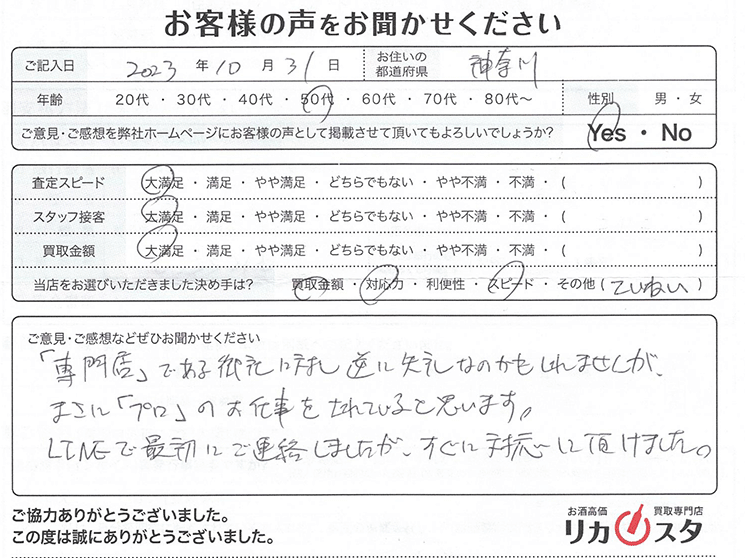 お客様の声をお聞かせください
ご記入日 2023 年 10 月 31 日 お住いの都道府県 神奈川
年齢 20代 ・ 30代 ・ 40代 ・ 50代 ・ 60代 ・ 70代 ・ 80代～ 性別 男 ・ 女
ご意見・ご感想を弊社ホームページにお客様の声として掲載させて頂いてもよろしいでしょうか? Yes ・ No
査定スピード 大満足 ・ 満足 ・ やや満足 ・ どちらでもない ・ やや不満 ・ 不満 ・ ( )
スタッフ接客 大満足 ・ 満足 ・ やや満足 ・ どちらでもない ・ やや不満 ・ 不満 ・ ( )
買取金額 大満足 ・ 満足 ・ やや満足 ・ どちらでもない ・ やや不満 ・ 不満 ・ ( )
当店をお選びいただきました決め手は? 買取金額 ・ 対応力 ・ 利便性 ・ スピード ・ その他 ( ていねい )
ご意見・ご感想などぜひお聞かせください
「専門店」である御社に対し逆に失礼なのかもしれませんが、
まさに「プロ」のお仕事をされていると思います。
LINEで最初にご連絡しましたが、すぐに対応して頂けました。
ご協力ありがとうございました。
この度は誠にありがとうございました。
お酒高価 買取専門店
リカスタ